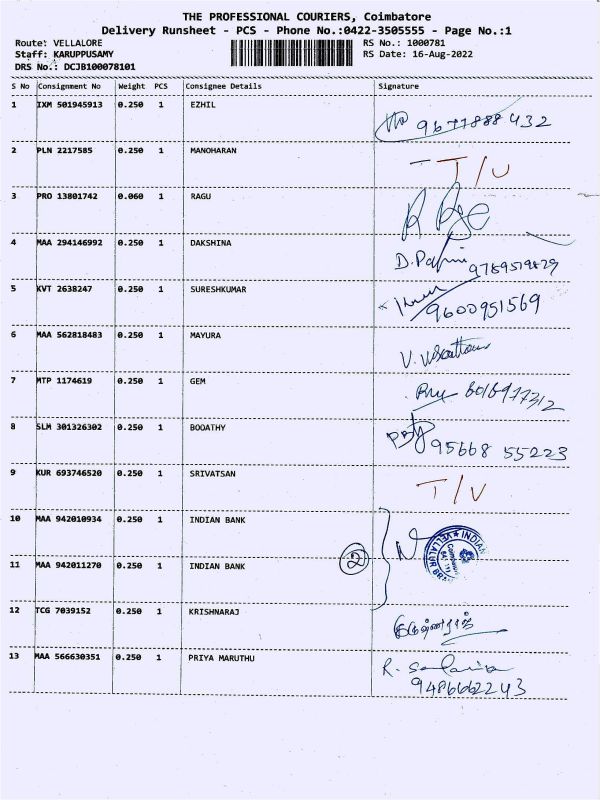 THE PROFESSIONAL COURIERS, Coimbatore
Delivery Runsheet - PCS - Phone No.:0422-3505555 - Page No.:1
Route: VELLALORE
RS No.: 1000781
Staff: KARUPPUSAMY
RS Date: 16-Aug-2022
DRS No.: DCJB100078101
S No Consignment No Weight PCS Consignee Details Signature
1 IXM 501945913 0.250 1 EZHIL
9677888432
2 PLN 2217585 0.250 1 MANOHARAN T/U
3 PRO 13801742 0.060 1 RAGU
4 MAA 294146992 0.250 1 DAKSHINA
9789519829
5 KVT 2638247 0.250 1 SURESHKUMAR
9600951569
6 MAA 562818483 0.250 1 MAYURA
7 MTP 1174619 0.250 1 GEM
8 SLM 301326302 0.250 1 BOOATHY
95668 55223
9 KUR 693746520 0.250 1 SRIVATSAN T/U
10 MAA 942010934 0.250 1 INDIAN BANK
11 MAA 942011270 0.250 1 INDIAN BANK 2
12 TCG 7039152 0.250 1 KRISHNARAJ
13 MAA 566630351 0.250 1 PRIYA MARUTHU
9486662243